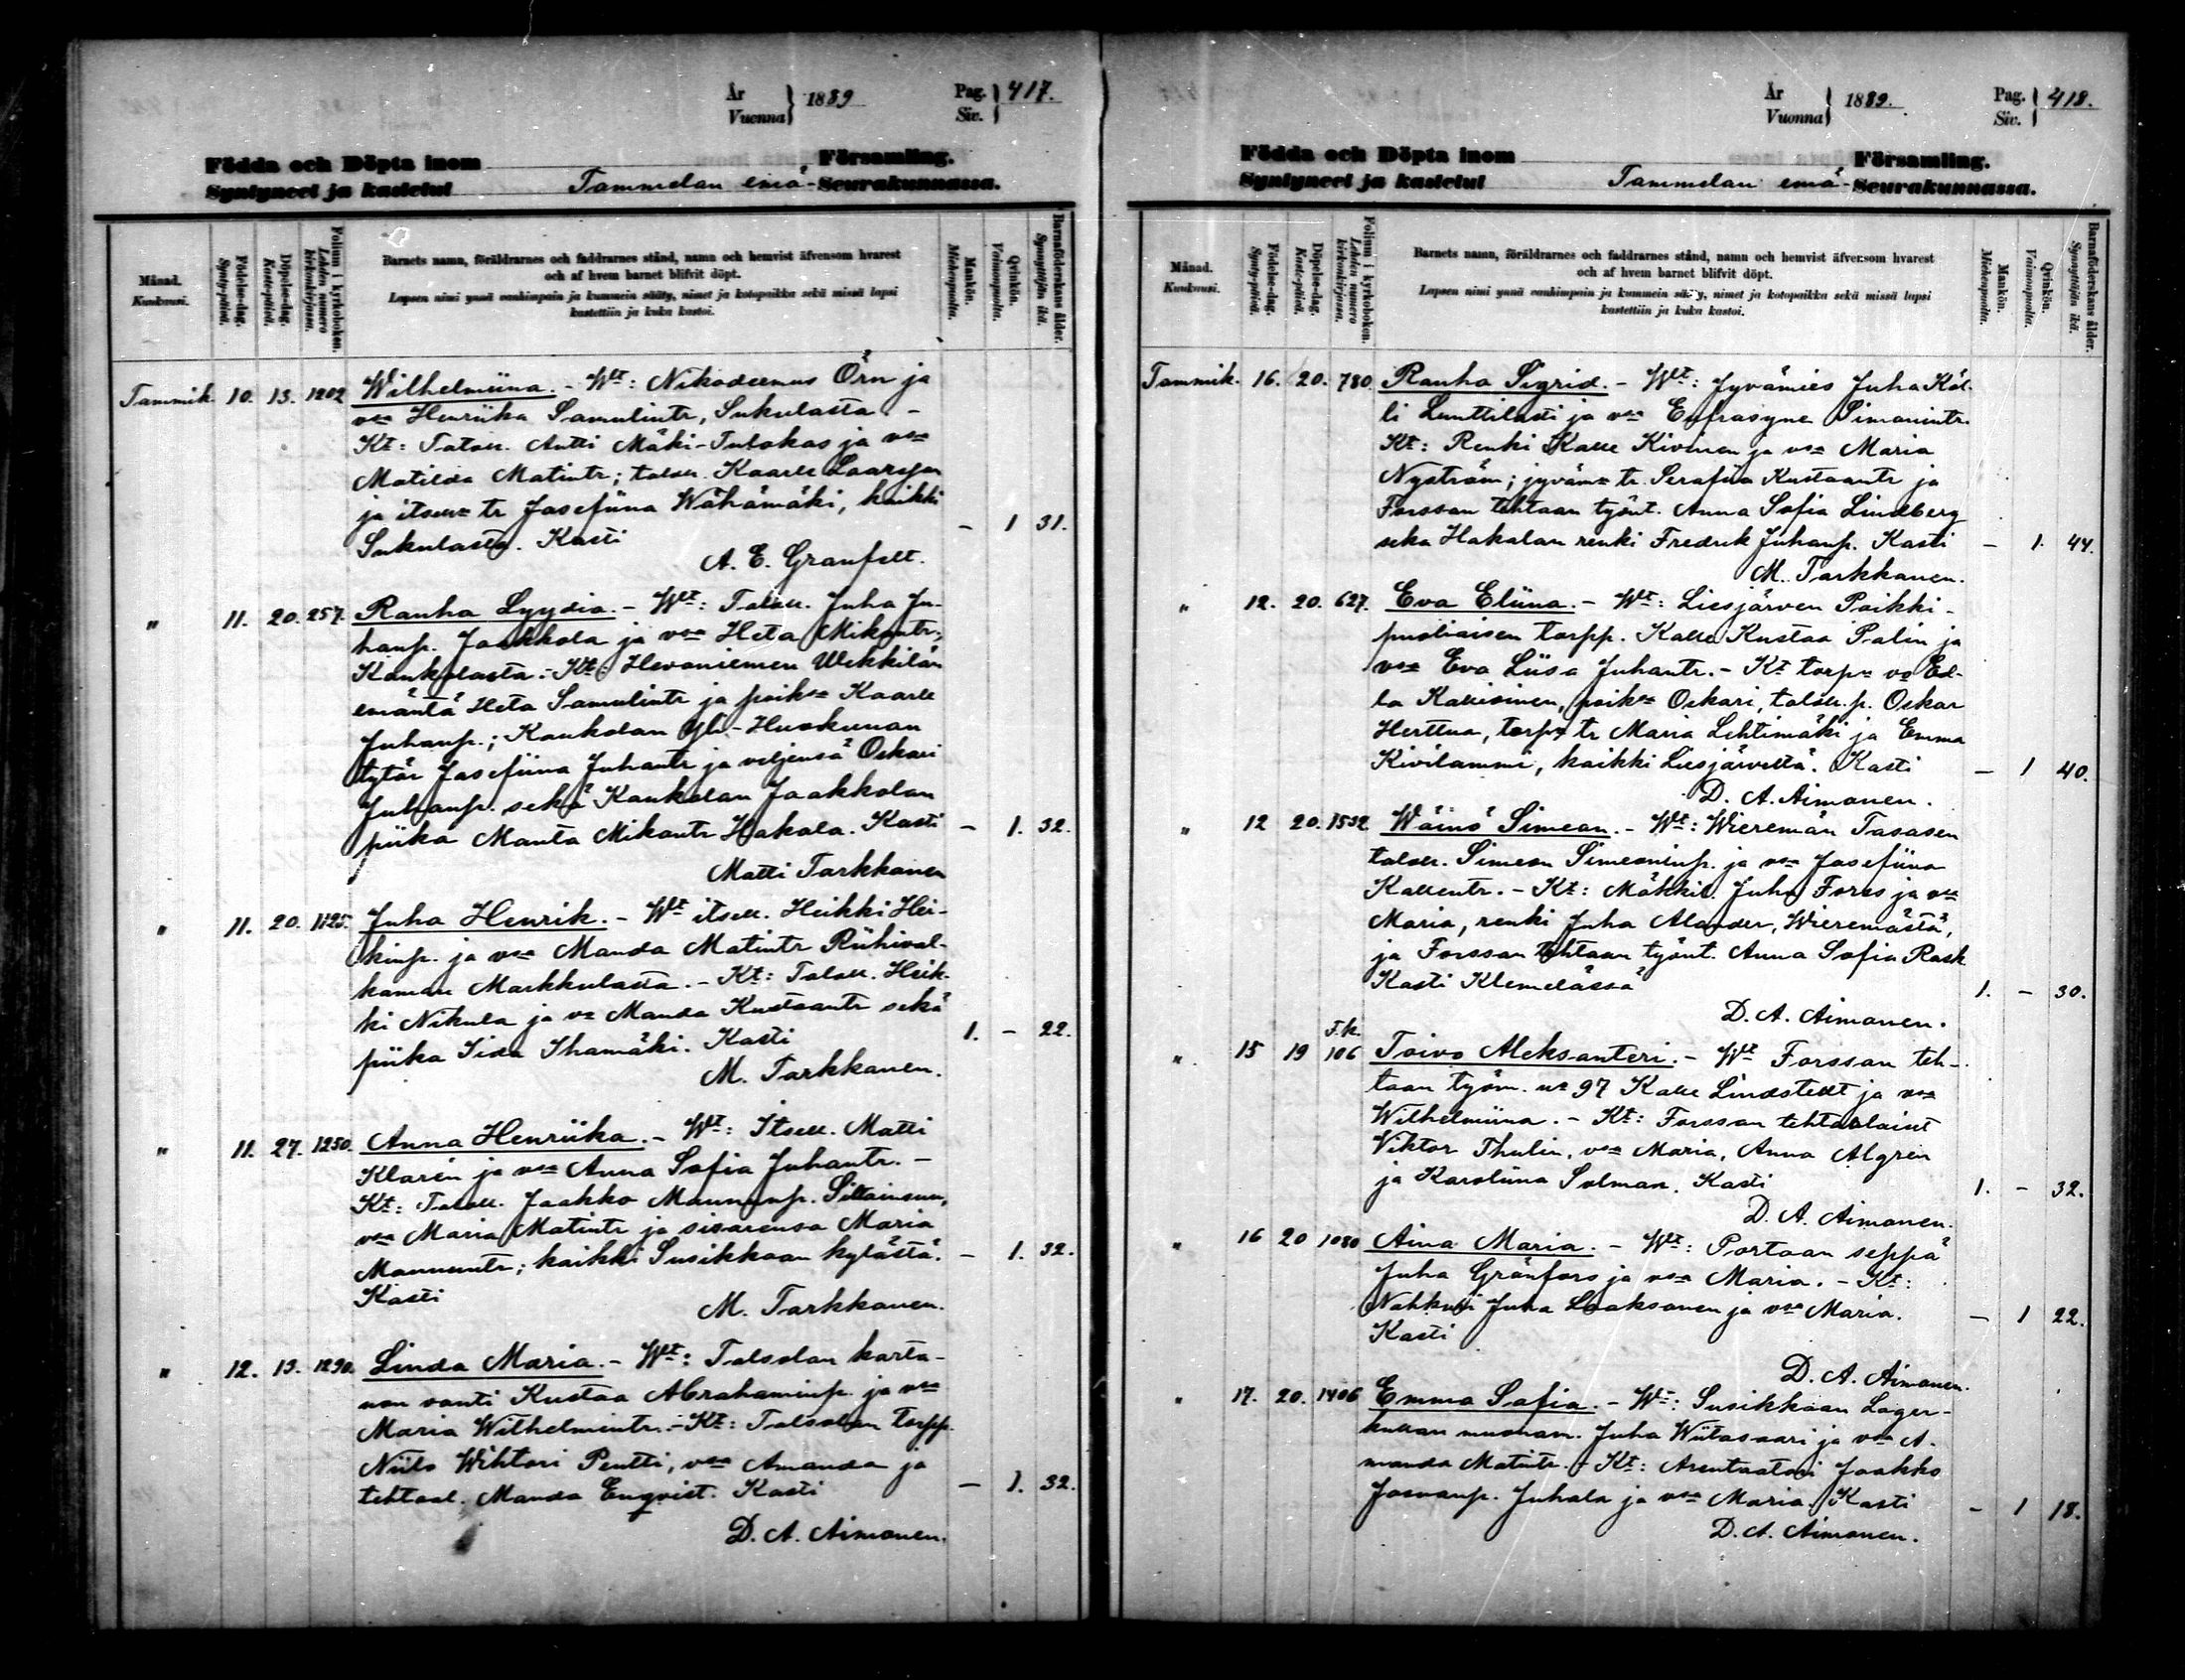 År
Vuonna } 1889
Pag.
Siv. } 417.
Födda och Döpta inom Församling.
Syntyneet ja kastetut Tammelan emä- Seurakunnassa.
Månad.
Kuukausi.
Födelse-dag.
Synty-päivä.
Döpelse-dag.
Kaste-päivä.
Folium i kyrkoboken.
Lehden numero kirkonkirjassa.
Barnets namn, föräldrarnes och faddrarnes stånd, namn och hemvist äfvensom hvarest
och af hvem barnet blifvit döpt.
Lapsen nimi ynnä vanhimpain ja kummein sääty, nimet ja kotopaikka sekä missä lapsi
kastettiin ja kuka kastoi.
Mankön.
Miehenpuolia.
Qvinkön.
Vaimonpuolia.
Barnaföderskans ålder.
Synnyttäjän ikä.
Tammik. 10. 13. 1202 Wilhelmiina. - Wt: Nikodemus Örn ja
vsa Henriika Samulintr, Sukulasta. -
Kt: Talol. Antti Mäki-Tulokas ja vsa
Matilda Matintr; talol. Kaarle Laarsson
ja itsell. tr Josefiina Wähämäki, kaikki
Sukulasta. Kasti - 1 31.
A. E. Granfelt.
" 11. 20. 257. Rauha Lyydia. - Wt: Talol. Juha Ju-
hanp. Jaakkola ja vsa Heta Mikontr,
Kaukolasta. - Kt: Hevoniemen Wekkilän
emäntä Heta Samulintr ja poiksa Kaarle
Juhanp.; Kaukolan Yli-Huokunan
tytär Josefiina Juhantr ja veljensä Oskari
Juhanp. sekä Kaukolan Jaakkolan
piika Manta Mikontr Hakala. Kasti - 1. 32.
Matti Tarkkanen
" 11. 20. 1125. Juha Henrik. - Wt itsell. Heikki Hei-
kinp. ja vsa Manda Matintr Riihival-
kaman Markkulasta. - Kt: Talol. Heik-
ki Nikula ja vs Manda Kustaantr sekä
piika Iida Ihamäki. Kasti 1. - 22.
M. Tarkkanen.
" 11. 27. 1250. Anna Henriika. - Wt: Itsell. Matti
Klarén ja vsa Anna Sofia Juhantr. -
Kt: Talol. Jaakko Maununp. Siltainsuu,
vsa Maria Matintr ja sisarensa Maria
Maununtr; kaikki Susikkaan kylästä. - 1. 32.
Kasti
M. Tarkkanen.
" 12. 13. 1290. Linda Maria. - Wt: Talsolan karta-
non vouti Kustaa Abrahaminp. ja vsa
Maria Wilhelmintr. - Kt: Talsolan torpp.
Niilo Wihtori Pentti, vsa Amanda ja
tehtaal. Manda Enqvist. Kasti - 1. 32.
D. A. Aimonen.
År
Vuonna } 1889.
Pag.
Siv. } 418.
Födda och Döpta inom Församling.
Syntyneet ja kastetut Tammelan emä- Seurakunnassa.
Månad.
Kuukausi.
Födelse-dag.
Synty-päivä.
Döpelse-dag.
Kaste-päivä.
Folium i kyrkoboken.
Lehden numero kirkonkirjassa.
Barnets namn, föräldrarnes och faddrarnes stånd, namn och hemvist äfvensom hvarest
och af hvem barnet blifvit döpt.
Lapsen nimi ynnä vanhimpain ja kummein sääty, nimet ja kotopaikka sekä missä lapsi
kastettiin ja kuka kastoi.
Mankön.
Miehenpuolia.
Qvinkön.
Vaimonpuolia.
Barnaföderskans ålder.
Synnyttäjän ikä.
Tammik. 16. 20. 780. Rauha Sigrid. - Wt: Jyvämies Juha Köl-
li Lunttilasti ja vsa Eufrasyne Simonintr.
Kt: Renki Kalle Kivinen ja vsa Maria
Nyström; jyväm. tr. Serafia Kustaantr ja
Forssan tehtaan työnt. Anna Sofia Lindberg
seka Hakalan renki Fredrik Juhanp. Kasti - 1. 44.
M. Tarkkanen.
" 12. 20. 627. Eva Eliina. - Wt: Liesjärven Poikki-
puoliaisen torpp. Kalle Kustaa Palin ja
vsa Eva Liisa Juhantr. - Kt torpn vo Ed-
la Kallioinen, poiksa Oskari, talol. p. Oskar
Herttua, torpn tr Maria Lehtimäki ja Emma
Kivilammi, kaikki Liesjärveltä. Kasti - 1 40.
D. A. Aimonen.
" 12 20. 1532 Wäinö Simeon. - Wt: Wieremän Tasasen
talol. Simeon Simeoninp. ja vsa Josefiina
Kallentr. - Kt: Mökkil. Juha Forss ja vsa
Maria, renki Juha Alander, Wieremästä,
ja Forssan tehtaan työnt. Anna Sofia Rask
Kasti Klemelässä 1. - 30.
D. A. Aimonen.
" 15 19 F.k. 106 Toivo Aleksanteri. - Wt Forssan teh-
taan työm. no 97 Kalle Lindstedt ja vsa
Wilhelmiina. - Kt: Forssan tehtaalaiset
Viktor Thulin, vsa Maria, Anna Algrén
ja Karoliina Solman. Kasti 1. - 32.
D. A. Aimonen.
" 16 20 1080 Aina Maria. - Wt: Portaan seppä
Juha Grönfors ja vsa Maria. - Kt:
Nahkuri Juha Laaksonen ja vsa Maria. - 1 22.
Kasti
D. A. Aimonen.
" 17. 20. 1406 Emma Sofia. - Wt: Susikkaan Lager-
kullan muonam. Juha Wiitasaari ja vsa A-
manda Matintr. - Kt: Arentaatori Jaakko
Joovanp. Juhala ja vsa Maria. Kasti - 1 18.
D. A. Aimonen.